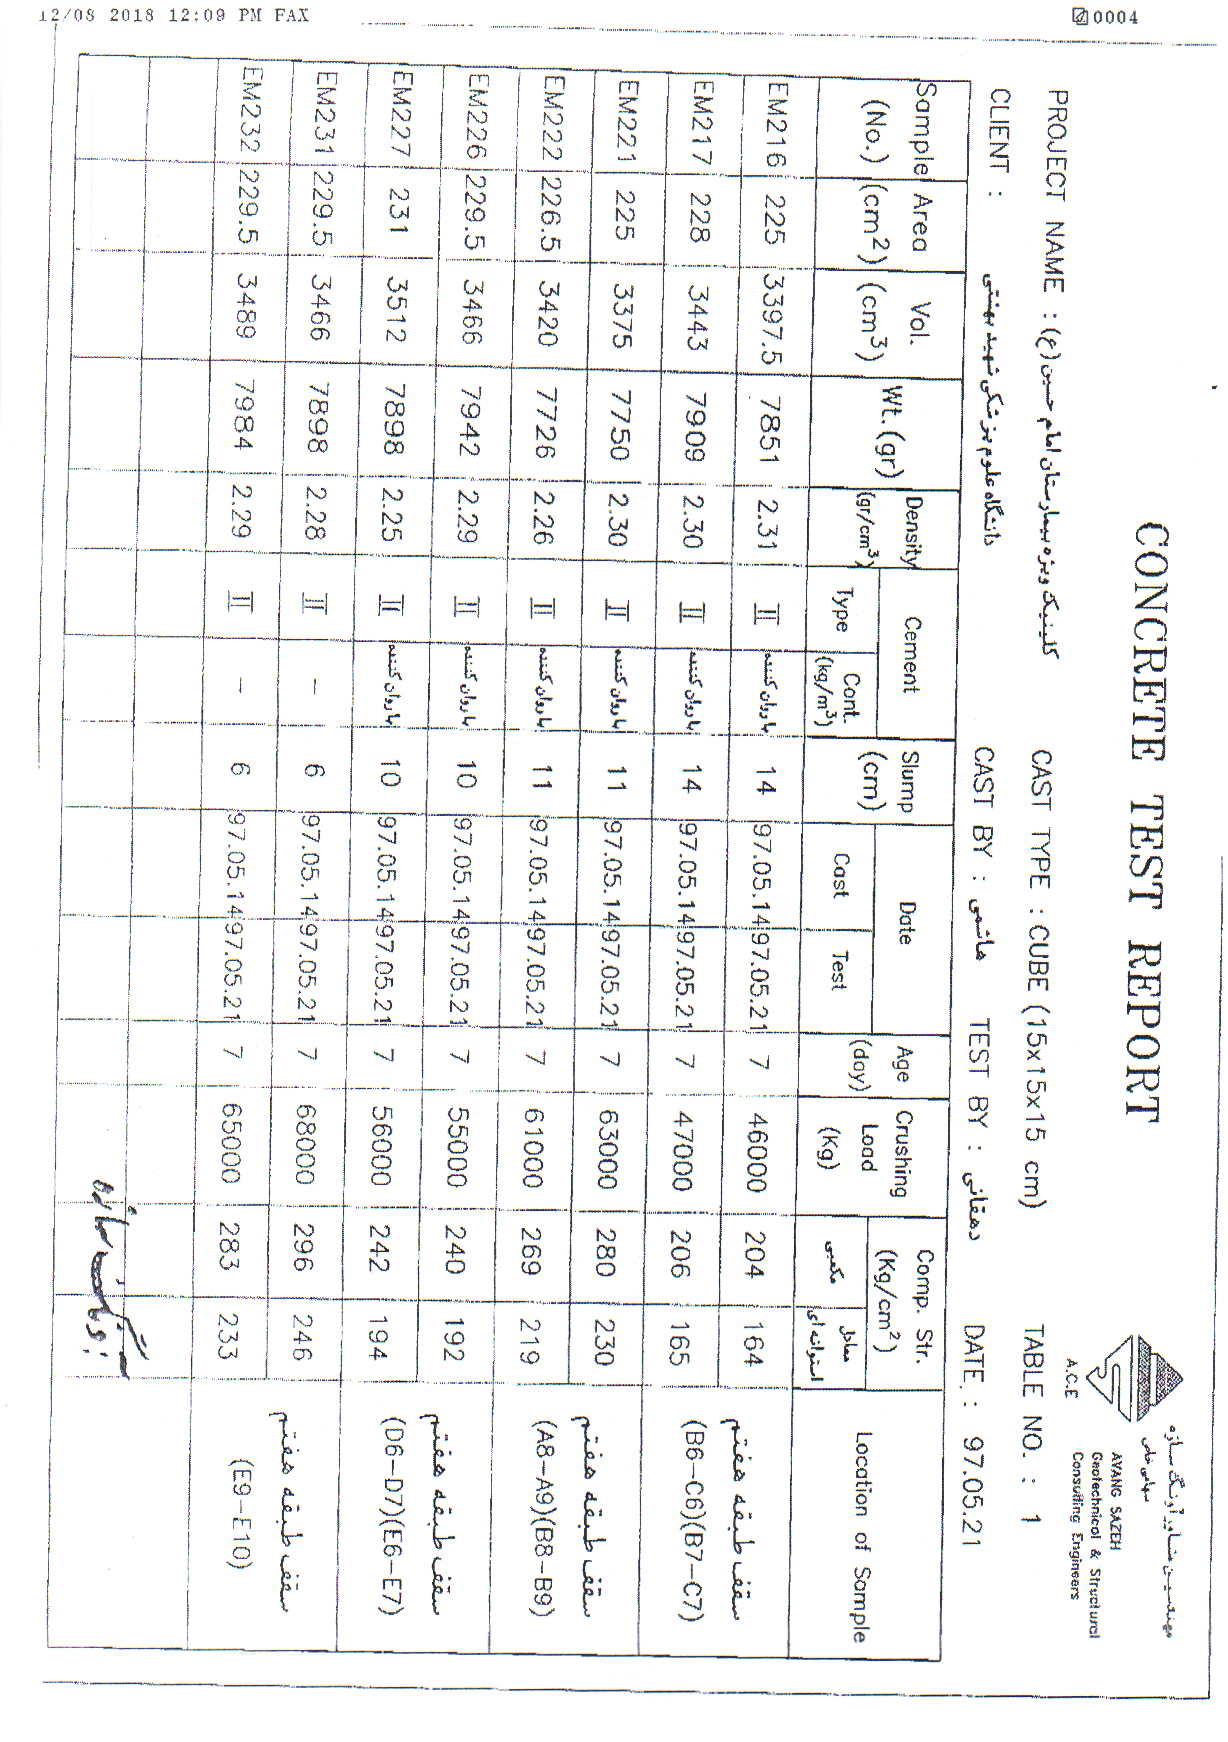 12/08 2018 12:09 PM FAX
0004
CONCRETE TEST REPORT
مهندسین مشاور آونگ سازه
سهامی خاص
A.C.E
AVANG SAZEH
Geotechnical & Structural
Consulting Engineers
PROJECT NAME : کلینیک ویژه بیمارستان امام حسین (ع) CAST TYPE : CUBE (15x15x15 cm) TABLE NO. : 1
CLIENT : دانشگاه علوم پزشکی شهید بهشتی CAST BY : هاشمی TEST BY : دهقانی DATE. : 97.05.21
Sample (No.) Area (cm2) Vol. (cm3) Wt.(gr) Density (gr/cm3) Cement Type Cont. (kg/m3) Slump (cm) Date Cast Test Age (day) Crushing Load (Kg) Comp. Str. (Kg/cm2) مکعبی معادل استوانه ای Location of Sample
EM216 225 3397.5 7851 2.31 II با روان کننده 14 97.05.14 97.05.21 7 46000 204 164 سقف طبقه هفتم
EM217 228 3443 7909 2.30 II با روان کننده 14 97.05.14 97.05.21 7 47000 206 165 (B6-C6)(B7-C7)
EM221 225 3375 7750 2.30 II با روان کننده 11 97.05.14 97.05.21 7 63000 280 230 سقف طبقه هفتم
EM222 226.5 3420 7726 2.26 II با روان کننده 11 97.05.14 97.05.21 7 61000 269 219 (A8-A9)(B8-B9)
EM226 229.5 3466 7942 2.29 II با روان کننده 10 97.05.14 97.05.21 7 55000 240 192 سقف طبقه هفتم
EM227 231 3512 7898 2.25 II با روان کننده 10 97.05.14 97.05.21 7 56000 242 194 (D6-D7)(E6-E7)
EM231 229.5 3466 7898 2.28 II - 6 97.05.14 97.05.21 7 68000 296 246 سقف طبقه هفتم
EM232 229.5 3489 7984 2.29 II - 6 97.05.14 97.05.21 7 65000 283 233 (E9-E10)